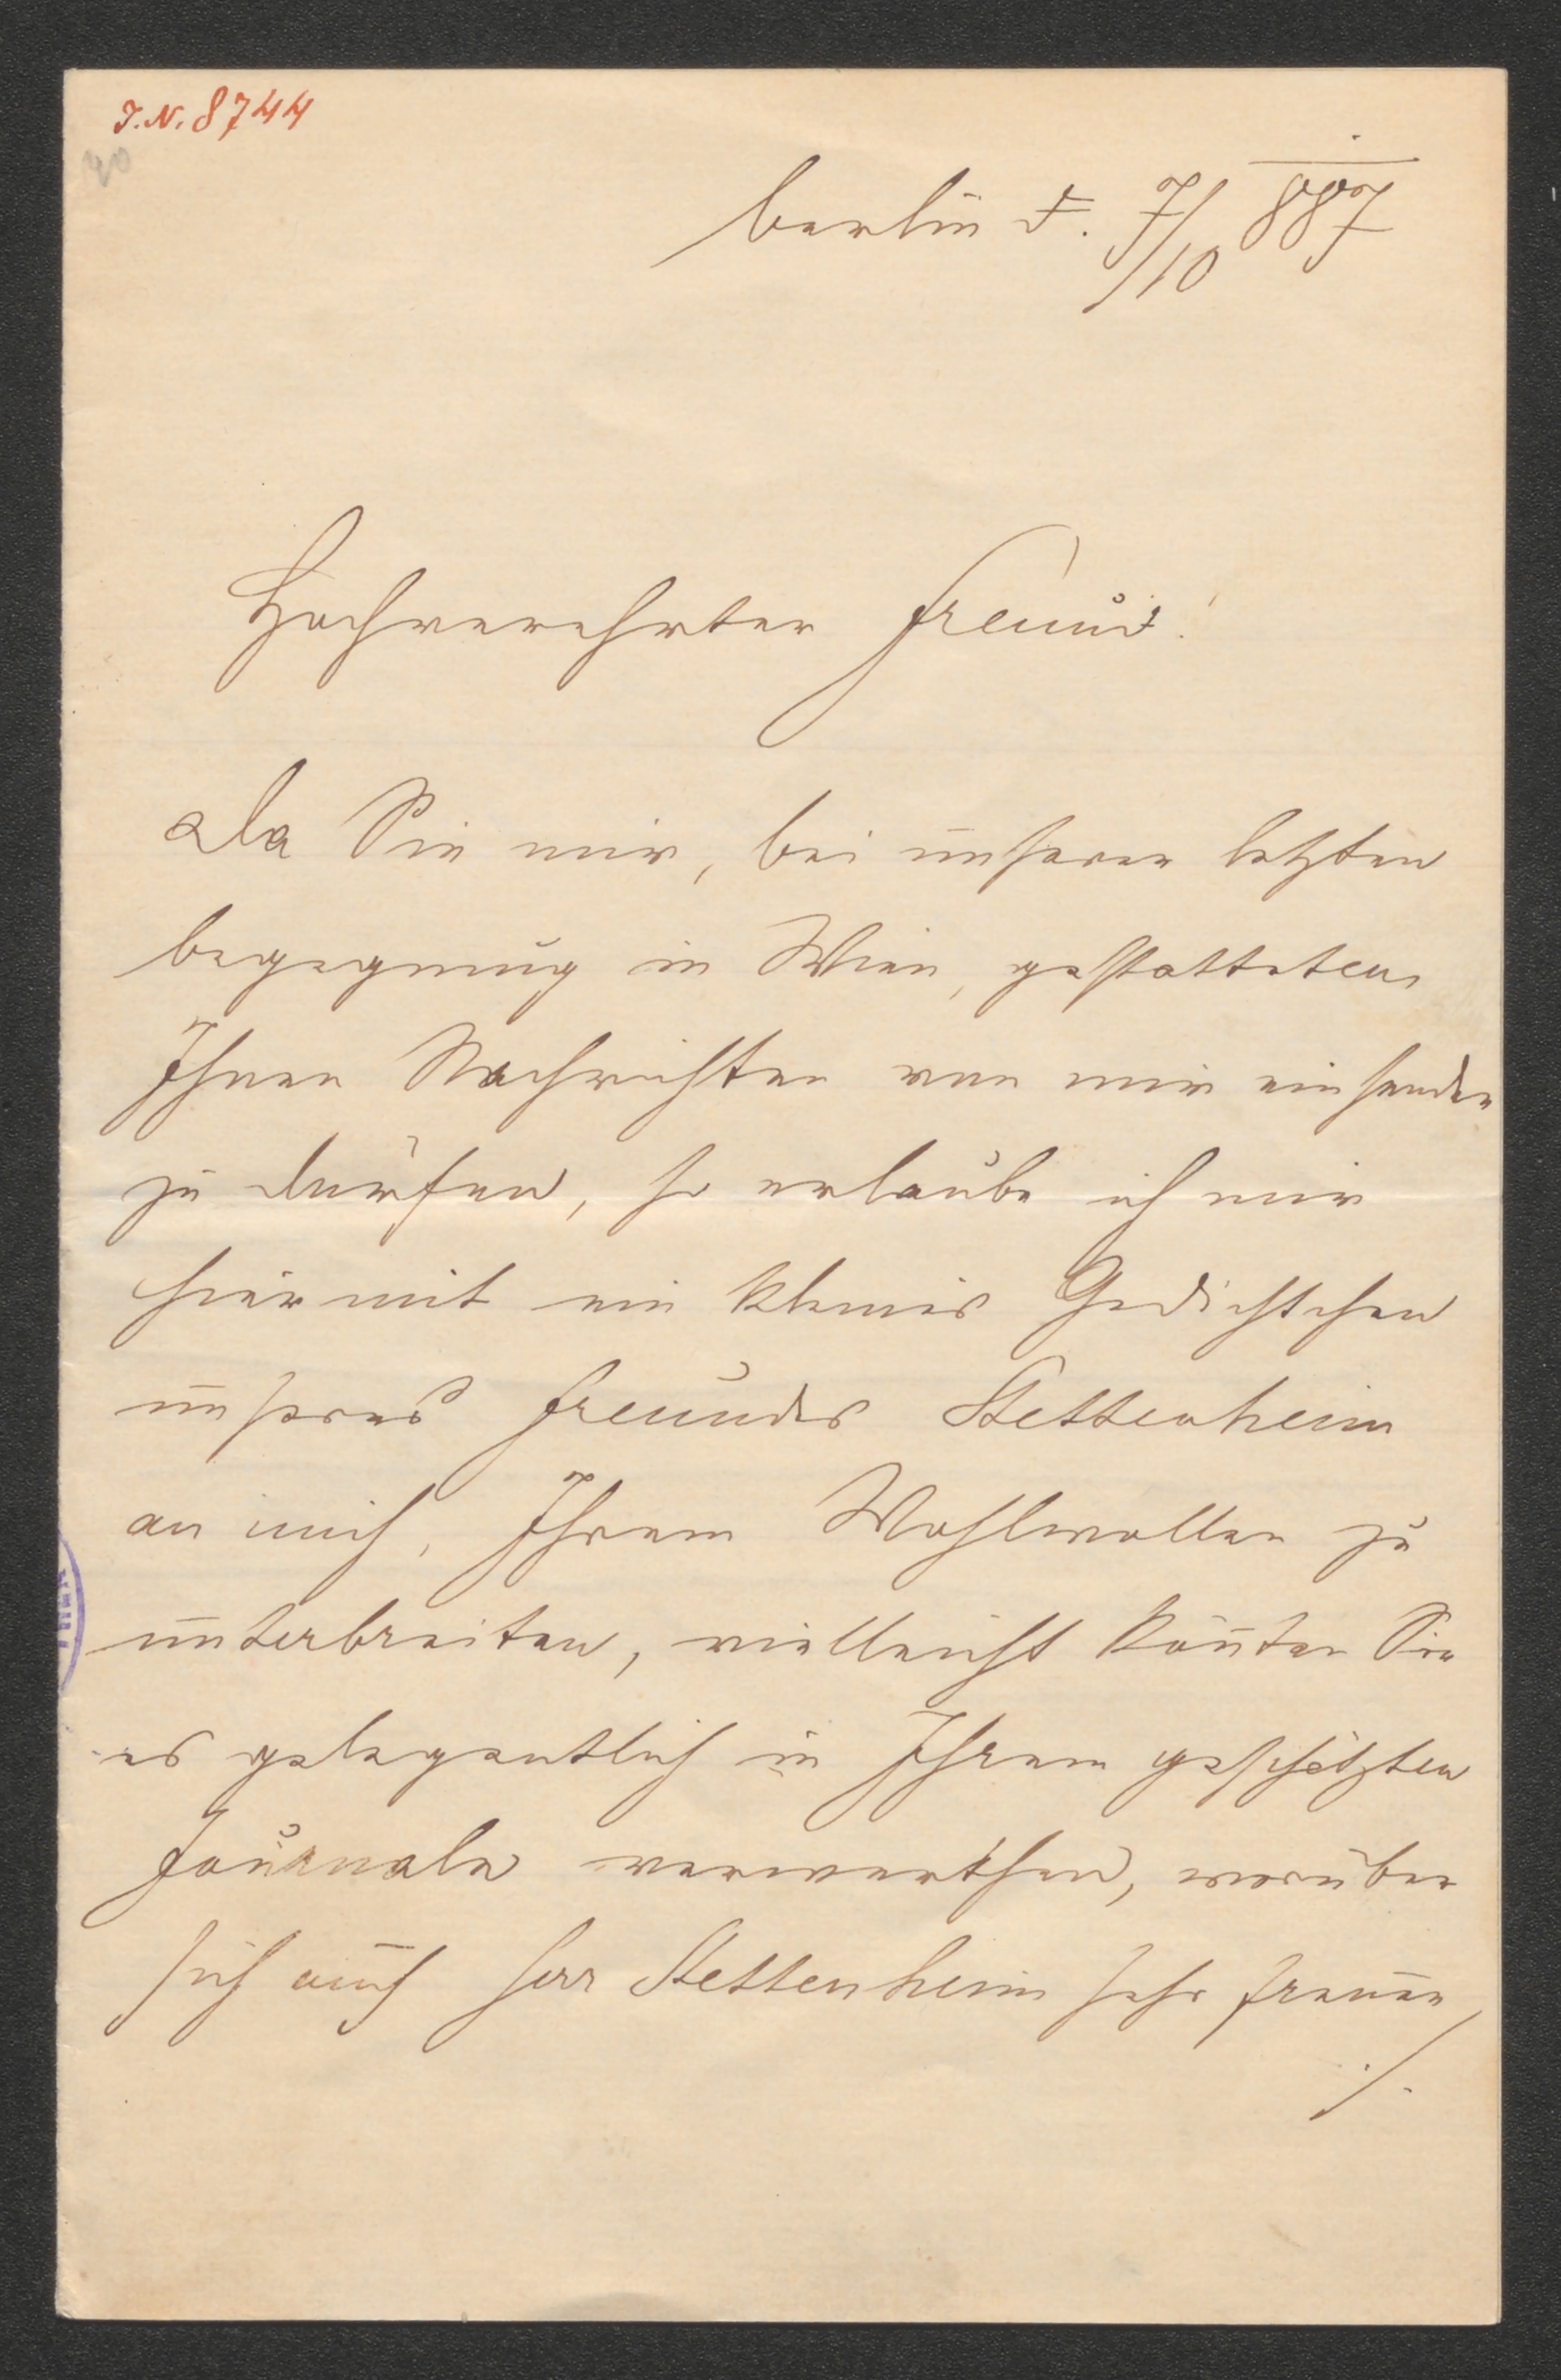 J.N. 8744
40
Berlin d. 7/10 887
Hochverehrter Freund!
Da Sie mir, bei unserer letzten
Begegnung in Wien, gestatteten
Ihnen Nachrichten von mir einsenden
zu dürfen, so erlaube ich mir
hiermit ein kleines Gedichtchen
unseres Freundes Stettenheim
an mich, Ihrem Wohlwollen zu
unterbreiten, vielleicht kön̄ten Sie
es gelegentlich in Ihrem geschätzten
Journale verwerthen, worüber
sich auch Herr Stettenheim sehr freuen
./.